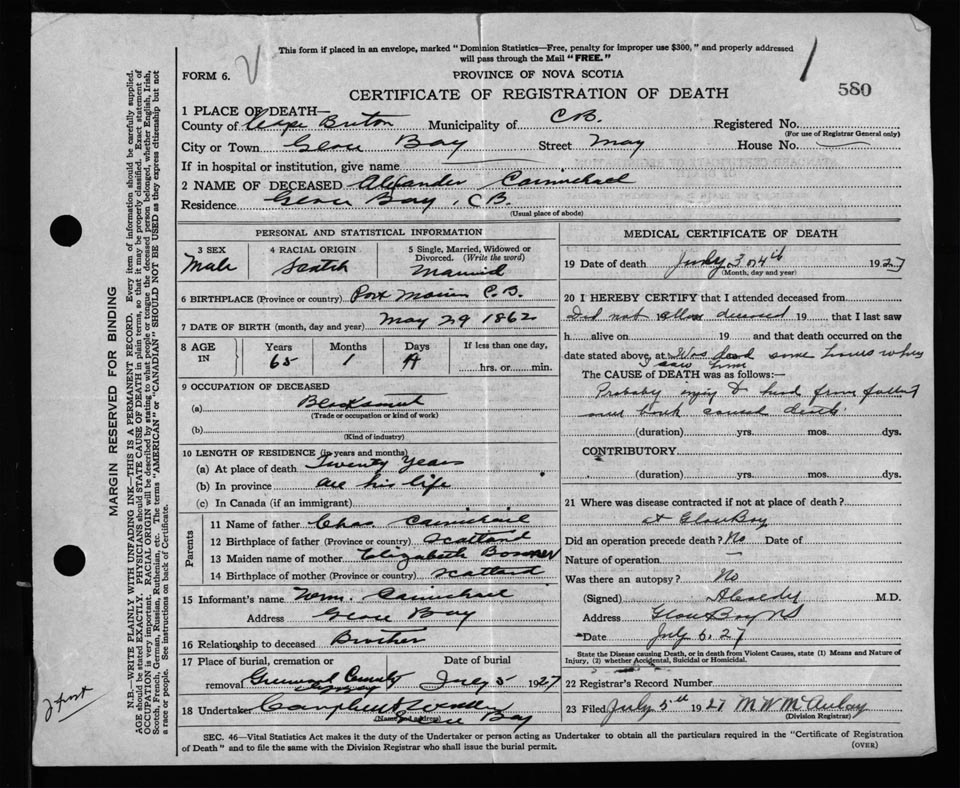 This form if placed in an envelope, marked "Dominion Statistics—Free, penalty for improper use $300," and properly addressed
will pass through the Mail "FREE."
FORM 6.
PROVINCE OF NOVA SCOTIA
1
580
CERTIFICATE OF REGISTRATION OF DEATH
1 PLACE OF DEATH—
County of Cape Breton Municipality of C.B. Registered No.
(For use of Registrar General only)
City or Town Glace Bay Street May House No.
If in hospital or institution, give name
2 NAME OF DECEASED Alexander Carmichael
Residence Glace Bay, C.B.
(Usual place of abode)
PERSONAL AND STATISTICAL INFORMATION
3 SEX 4 RACIAL ORIGIN 5 Single, Married, Widowed or Divorced. (Write the word)
Male Scotch Married
6 BIRTHPLACE (Province or country) Port Morien C.B.
7 DATE OF BIRTH (month, day and year) May 29 1862
8 AGE IN Years Months Days If less than one day,
65 1 hrs. or min.
9 OCCUPATION OF DECEASED
(a) Blacksmith
(Trade or occupation or kind of work)
(b)
(Kind of industry)
10 LENGTH OF RESIDENCE (in years and months)
(a) At place of death Twenty Years
(b) In province all his life
(c) In Canada (if an immigrant)
Parents
11 Name of father Chas Carmichael
12 Birthplace of father (Province or country) Scotland
13 Maiden name of mother Elizabeth
14 Birthplace of mother (Province or country) Scotland
15 Informant's name Wm. Carmichael
Address Glace Bay
16 Relationship to deceased Brother
17 Place of burial, cremation or removal Greenwood Cemetery
Date of burial July 5 1927
18 Undertaker Campbell
(Name and address) Glace Bay
MEDICAL CERTIFICATE OF DEATH
19 Date of death July 3 or 4th 1927
(Month, day and year)
20 I HEREBY CERTIFY that I attended deceased from
Did not attend deceased 19 that I last saw
h alive on 19 and that death occurred on the
date stated above, at Was dead some hours when
I saw him
The CAUSE of DEATH was as follows:—
Probably injury to head from fall
death
(duration) yrs. mos. dys.
CONTRIBUTORY
(duration) yrs. mos. dys.
21 Where was disease contracted if not at place of death?
at Glace Bay
Did an operation precede death? No Date of
Nature of operation —
Was there an autopsy? No
(Signed) M.D.
Address Glace Bay NS
Date July 6. 27
State the Disease causing Death, or in death from Violent Causes, state (1) Means and Nature of
Injury, (2) whether Accidental, Suicidal or Homicidal.
22 Registrar's Record Number
23 Filed July 5th 1927 M W McAulay
(Division Registrar)
SEC. 46—Vital Statistics Act makes it the duty of the Undertaker or person acting as Undertaker to obtain all the particulars required in the "Certificate of Registration
of Death" and to file the same with the Division Registrar who shall issue the burial permit.
(OVER)
MARGIN RESERVED FOR BINDING
N.B.—WRITE PLAINLY WITH UNFADING INK—THIS IS A PERMANENT RECORD. Every item of information should be carefully supplied.
AGE should be stated EXACTLY. PHYSICIANS should STATE CAUSE OF DEATH in plain terms, so that it may be properly classified. Exact statement of
OCCUPATION is very important. RACIAL ORIGIN will be described by stating to what people or tongue the deceased person belonged, whether English, Irish,
Scotch, French, German, Russian, Ruthenian, etc. The terms "AMERICAN" or "CANADIAN" SHOULD NOT BE USED as they express citizenship but not
a race or people. See instructions on back of Certificate.